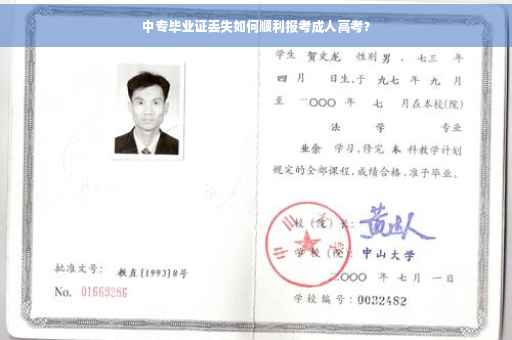 中专毕业证丢失如何顺利报考成人高考?
学生 贺文龙 性别 男 、七三 年
四 月 日生,于 九七 年 九 月
至 二〇〇〇 年 七 月在本校(院)
法 学 专业
业余 学习,修完 本 科教学计划
规定的全部课程,成绩合格,准予毕业。
校(院)长:
学校(院): 中山大学
二〇〇〇 年 七 月 一 日
学校编号: 0032482
批准文号: 教直[1993]8号
No. 01669286